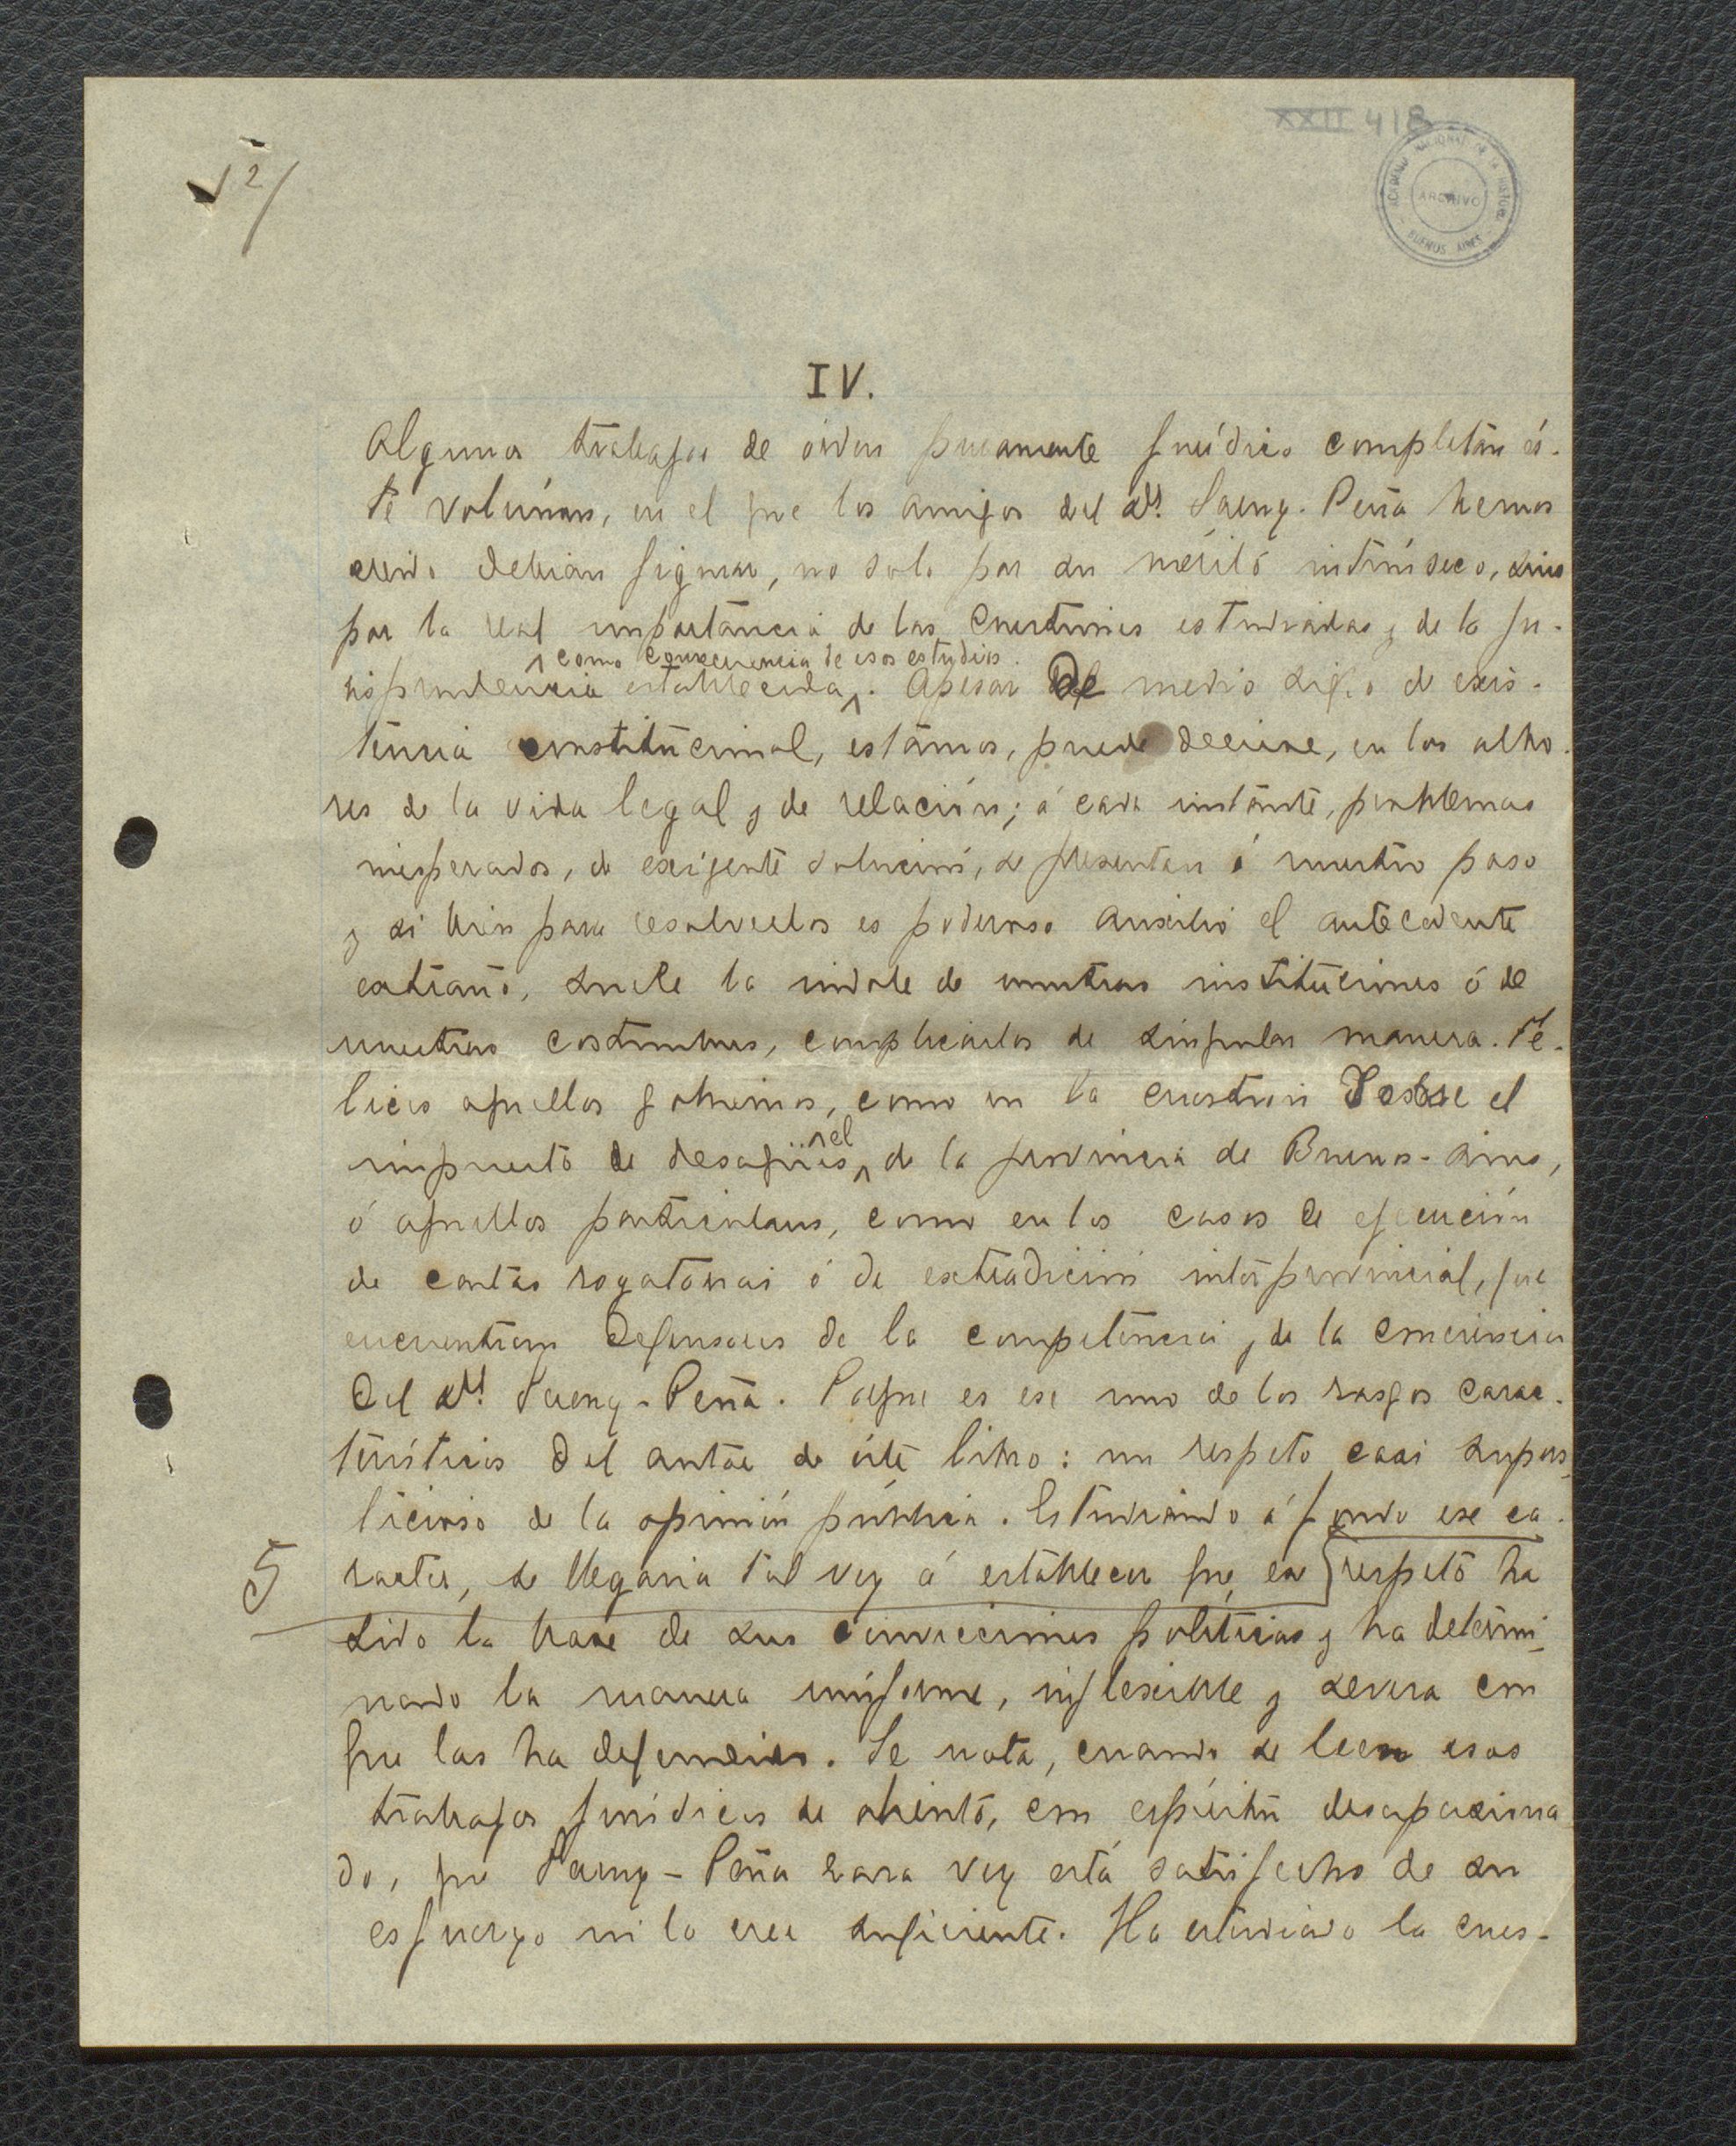 XXII 418
ACADEMIA NACIONAL DE LA HISTORIA
ARCHIVO
BUENOS AIRES
12/
IV.
Algunos trabajos de órden puramente jurídico completan és-
te volúmen, en el que los amigos del Dr. Saenz-Peña hemos
creido debian figurar, no solo por su mérito intrínseco, sino
por la real importancia de las cuestiones estudiadas y de la ju-
como consecuencia de esos estudios.
risprudencia establecida. Apesar de medio siglo de exis-
tencia constitucional, estamos, puede decirse, en los albo-
res de la vida legal y de relación; á cada instante, problemas
inesperados, de exigente solución, se presentan á nuestro paso
y si bien para resolverlos es poderoso auxilio el antecedente
extraño, suele la indole de nuestras instituciones ó de
nuestras costumbres, complicarlos de singular manera. Fe-
lices aquellos gobiernos, como en la cuestion sobre el
impuesto de desagües, el de la provincia de Buenos-Aires,
ó aquellos particulares, como en los casos de ejecución
de cartas rogatorias ó de extradición interprovincial, que
encuentran defensores de la competencia y de la conciencia
del Dr. Saenz-Peña. Porque es ese uno de los rasgos carac-
terísticos del autor de éste libro: un respeto casi supers-
ticioso de la opinión pública. Estudiando á fondo ese ca-
5
racter, se llegaria tal vez á establecer que ese respeto ha
sido la base de sus convicciones políticas y ha determi-
nado la manera uniforme, inflexible y severa con
que las ha defendido. Se nota, cuando se leen esos
trabajos jurídicos de aliento, con espíritu desapasiona
do, que Saenz-Peña rara vez está satisfecho de su
esfuerzo ni lo cree suficiente. Ha estudiado la cues-